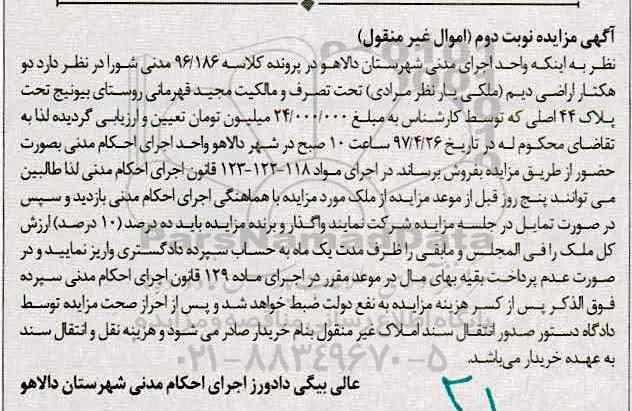 آگهی مزایده نوبت دوم (اموال غیر منقول)
نظر به اینکه واحد اجرای مدنی شهرستان دالاهو در پرونده کلاسه ۹۶/۱۸۶ مدنی شورا در نظر دارد دو
هکتار اراضی دیم (ملکی یار نظر مرادی) تحت تصرف و مالکیت مجید قهرمانی روستای بیونیج تحت
پلاک ۴۴ اصلی که توسط کارشناس به مبلغ ۲۴/۰۰۰/۰۰۰ میلیون تومان تعیین و ارزیابی گردیده لذا به
تقاضای محکوم له در تاریخ ۹۷/۴/۲۶ ساعت ۱۰ صبح در شهر دالاهو واحد اجرای احکام مدنی بصورت
حضور از طریق مزایده بفروش برساند. در اجرای مواد ۱۱۸-۱۲۲-۱۲۳ قانون اجرای احکام مدنی لذا طالبین
می توانند پنج روز قبل از موعد مزایده از ملک مورد مزایده با هماهنگی اجرای احکام مدنی بازدید و سپس
در صورت تمایل در جلسه مزایده شرکت نمایند واگذار و برنده مزایده باید ده درصد (۱۰ درصد) ارزش
کل ملک را فی المجلس و مابقی را ظرف مدت یک ماه به حساب سپرده دادگستری واریز نمایید و در
صورت عدم پرداخت بقیه بهای مال در موعد مقرر در اجرای ماده ۱۲۹ قانون اجرای احکام مدنی سپرده
فوق الذکر پس از کسر هزینه مزایده به نفع دولت ضبط خواهد شد و پس از احراز صحت مزایده توسط
دادگاه دستور صدور انتقال سند املاک غیر منقول بنام خریدار صادر می شود و هزینه نقل و انتقال سند
به عهده خریدار می‌باشد.
عالی بیگی دادورز اجرای احکام مدنی شهرستان دالاهو
ParsNamadData
۰۲۱-۸۸۳۴۹۶۷۰-۵